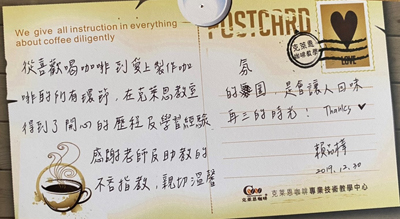 We give all instruction in everything
about coffee diligently
POSTCARD
克萊恩
咖啡教學
LOVE
從喜歡喝咖啡到愛上製作咖
啡的所有環節，在克萊恩教室
得到了開心的歷程及學習經驗
感謝老師及助教的
不吝指教，親切溫馨
氛
的氛圍，是會讓人回味
再三的時光！ Thanks ♥
2019.12.30
克萊恩咖啡
克萊恩咖啡專業技術教學中心